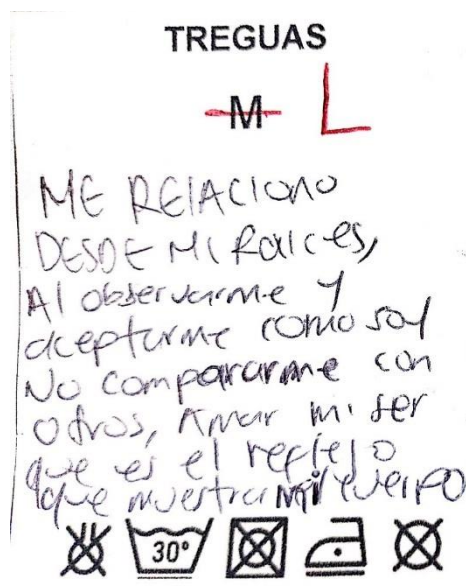 TREGUAS
M L
ME RElACIONO
DESDE Mi Raices,
Al observarme y
aceptarme como soy
No compararme con
otros, Amar mi ser
que es el reflejo
que muestra mi cuerpo
30°